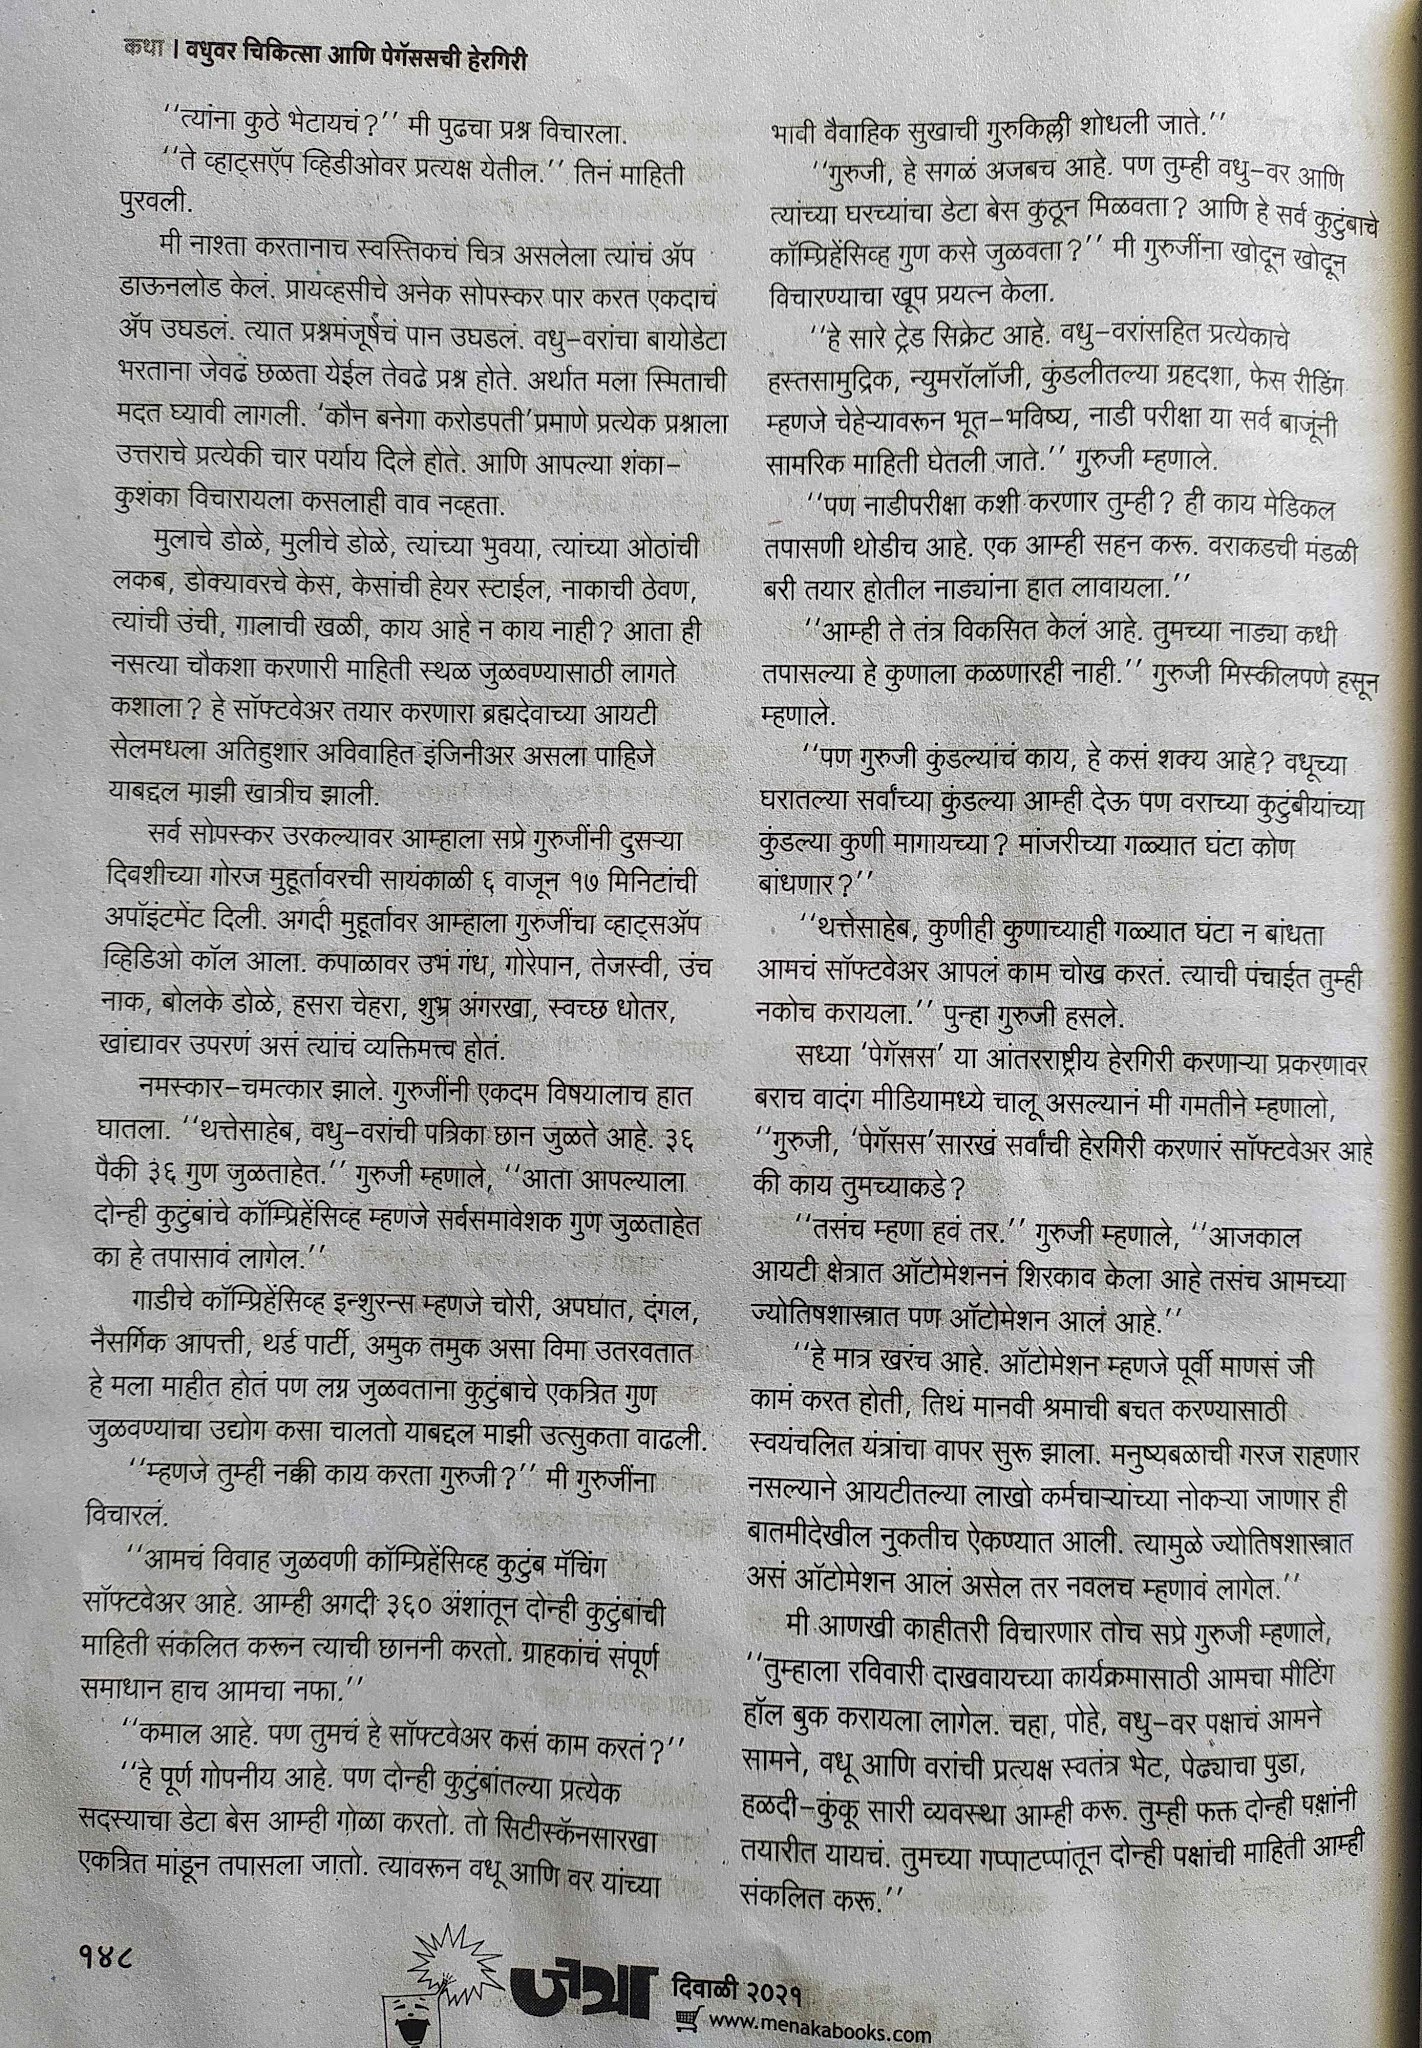 कथा । वधुवर चिकित्सा आणि पेगॅससची हेरगिरी
‘‘त्यांना कुठे भेटायचं?’’ मी पुढचा प्रश्न विचारला.
‘‘ते व्हाट्सऍप व्हिडीओवर प्रत्यक्ष येतील.’’ तिनं माहिती
पुरवली.
मी नाश्ता करतानाच स्वस्तिकचं चित्र असलेला त्यांचं ॲप
डाऊनलोड केलं. प्रायव्हसीचे अनेक सोपस्कर पार करत एकदाचं
ॲप उघडलं. त्यात प्रश्नमंजूषेचं पान उघडलं. वधु-वरांचा बायोडेटा
भरताना जेवढं छळता येईल तेवढे प्रश्न होते. अर्थात मला स्मिताची
मदत घ्यावी लागली. ‘कौन बनेगा करोडपती’प्रमाणे प्रत्येक प्रश्नाला
उत्तराचे प्रत्येकी चार पर्याय दिले होते. आणि आपल्या शंका-
कुशंका विचारायला कसलाही वाव नव्हता.
मुलाचे डोळे, मुलीचे डोळे, त्यांच्या भुवया, त्यांच्या ओठांची
लकब, डोक्यावरचे केस, केसांची हेयर स्टाईल, नाकाची ठेवण,
त्यांची उंची, गालाची खळी, काय आहे न काय नाही? आता ही
नसत्या चौकशा करणारी माहिती स्थळ जुळवण्यासाठी लागते
कशाला? हे सॉफ्टवेअर तयार करणारा ब्रह्मदेवाच्या आयटी
सेलमधला अतिहुशार अविवाहित इंजिनीअर असला पाहिजे
याबद्दल माझी खात्रीच झाली.
सर्व सोपस्कर उरकल्यावर आम्हाला सप्रे गुरुजींनी दुसऱ्या
दिवशीच्या गोरज मुहूर्तावरची सायंकाळी ६ वाजून १७ मिनिटांची
अपॉइंटमेंट दिली. अगदी मुहूर्तावर आम्हाला गुरुजींचा व्हाट्सॲप
व्हिडिओ कॉल आला. कपाळावर उभं गंध, गोरेपान, तेजस्वी, उंच
नाक, बोलके डोळे, हसरा चेहरा, शुभ्र अंगरखा, स्वच्छ धोतर,
खांद्यावर उपरणं असं त्यांचं व्यक्तिमत्त्व होतं.
नमस्कार-चमत्कार झाले. गुरुजींनी एकदम विषयालाच हात
घातला. ‘‘थत्तेसाहेब, वधु-वरांची पत्रिका छान जुळते आहे. ३६
पैकी ३६ गुण जुळताहेत.’’ गुरुजी म्हणाले, ‘‘आता आपल्याला
दोन्ही कुटुंबांचे कॉम्प्रिहेंसिव्ह म्हणजे सर्वसमावेशक गुण जुळताहेत
का हे तपासावं लागेल.’’
गाडीचे कॉम्प्रिहेंसिव्ह इन्शुरन्स म्हणजे चोरी, अपघात, दंगल,
नैसर्गिक आपत्ती, थर्ड पार्टी, अमुक तमुक असा विमा उतरवतात
हे मला माहीत होतं पण लग्न जुळवताना कुटुंबाचे एकत्रित गुण
जुळवण्याचा उद्योग कसा चालतो याबद्दल माझी उत्सुकता वाढली.
‘‘म्हणजे तुम्ही नक्की काय करता गुरुजी?’’ मी गुरुजींना
विचारलं.
‘‘आमचं विवाह जुळवणी कॉम्प्रिहेंसिव्ह कुटुंब मॅचिंग
सॉफ्टवेअर आहे. आम्ही अगदी ३६० अंशांतून दोन्ही कुटुंबांची
माहिती संकलित करून त्याची छाननी करतो. ग्राहकांचं संपूर्ण
समाधान हाच आमचा नफा.’’
‘‘कमाल आहे. पण तुमचं हे सॉफ्टवेअर कसं काम करतं?’’
‘‘हे पूर्ण गोपनीय आहे. पण दोन्ही कुटुंबांतल्या प्रत्येक
सदस्याचा डेटा बेस आम्ही गोळा करतो. तो सिटीस्कॅनसारखा
एकत्रित मांडून तपासला जातो. त्यावरून वधू आणि वर यांच्या
भावी वैवाहिक सुखाची गुरुकिल्ली शोधली जाते.’’
‘‘गुरुजी, हे सगळं अजबच आहे. पण तुम्ही वधु-वर आणि
त्यांच्या घरच्यांचा डेटा बेस कुठून मिळवता? आणि हे सर्व कुटुंबाचे
कॉम्प्रिहेंसिव्ह गुण कसे जुळवता?’’ मी गुरुजींना खोदून खोदून
विचारण्याचा खूप प्रयत्न केला.
‘‘हे सारे ट्रेड सिक्रेट आहे. वधु-वरांसहित प्रत्येकाचे
हस्तसामुद्रिक, न्युमरॉलॉजी, कुंडलीतल्या ग्रहदशा, फेस रीडिंग
म्हणजे चेहेऱ्यावरून भूत-भविष्य, नाडी परीक्षा या सर्व बाजूंनी
सामरिक माहिती घेतली जाते.’’ गुरुजी म्हणाले.
‘‘पण नाडीपरीक्षा कशी करणार तुम्ही? ही काय मेडिकल
तपासणी थोडीच आहे. एक आम्ही सहन करू. वराकडची मंडळी
बरी तयार होतील नाड्यांना हात लावायला.’’
‘‘आम्ही ते तंत्र विकसित केलं आहे. तुमच्या नाड्या कधी
तपासल्या हे कुणाला कळणारही नाही.’’ गुरुजी मिस्कीलपणे हसून
म्हणाले.
‘‘पण गुरुजी कुंडल्यांचं काय, हे कसं शक्य आहे? वधूच्या
घरातल्या सर्वांच्या कुंडल्या आम्ही देऊ पण वराच्या कुटुंबीयांच्या
कुंडल्या कुणी मागायच्या? मांजरीच्या गळ्यात घंटा कोण
बांधणार?’’
‘‘थत्तेसाहेब, कुणीही कुणाच्याही गळ्यात घंटा न बांधता
आमचं सॉफ्टवेअर आपलं काम चोख करतं. त्याची पंचाईत तुम्ही
नकोच करायला.’’ पुन्हा गुरुजी हसले.
सध्या ‘पेगॅसस’ या आंतरराष्ट्रीय हेरगिरी करणाऱ्या प्रकरणावर
बराच वादंग मीडियामध्ये चालू असल्यानं मी गमतीने म्हणालो,
‘‘गुरुजी, ‘पेगॅसस’सारखं सर्वांची हेरगिरी करणारं सॉफ्टवेअर आहे
की काय तुमच्याकडे?
‘‘तसंच म्हणा हवं तर.’’ गुरुजी म्हणाले, ‘‘आजकाल
आयटी क्षेत्रात ऑटोमेशननं शिरकाव केला आहे तसंच आमच्या
ज्योतिषशास्त्रात पण ऑटोमेशन आलं आहे.’’
‘‘हे मात्र खरंच आहे. ऑटोमेशन म्हणजे पूर्वी माणसं जी
कामं करत होती, तिथं मानवी श्रमाची बचत करण्यासाठी
स्वयंचलित यंत्रांचा वापर सुरू झाला. मनुष्यबळाची गरज राहणार
नसल्याने आयटीतल्या लाखो कर्मचाऱ्यांच्या नोकऱ्या जाणार ही
बातमीदेखील नुकतीच ऐकण्यात आली. त्यामुळे ज्योतिषशास्त्रात
असं ऑटोमेशन आलं असेल तर नवलच म्हणावं लागेल.’’
मी आणखी काहीतरी विचारणार तोच सप्रे गुरुजी म्हणाले,
‘‘तुम्हाला रविवारी दाखवायच्या कार्यक्रमासाठी आमचा मीटिंग
हॉल बुक करायला लागेल. चहा, पोहे, वधु-वर पक्षाचं आमने
सामने, वधू आणि वरांची प्रत्यक्ष स्वतंत्र भेट, पेढ्याचा पुडा,
हळदी-कुंकू सारी व्यवस्था आम्ही करू. तुम्ही फक्त दोन्ही पक्षांनी
तयारीत यायचं. तुमच्या गप्पाटप्पांतून दोन्ही पक्षांची माहिती आम्ही
संकलित करू.’’
१४८
जत्रा दिवाळी २०२१
www.menakabooks.com